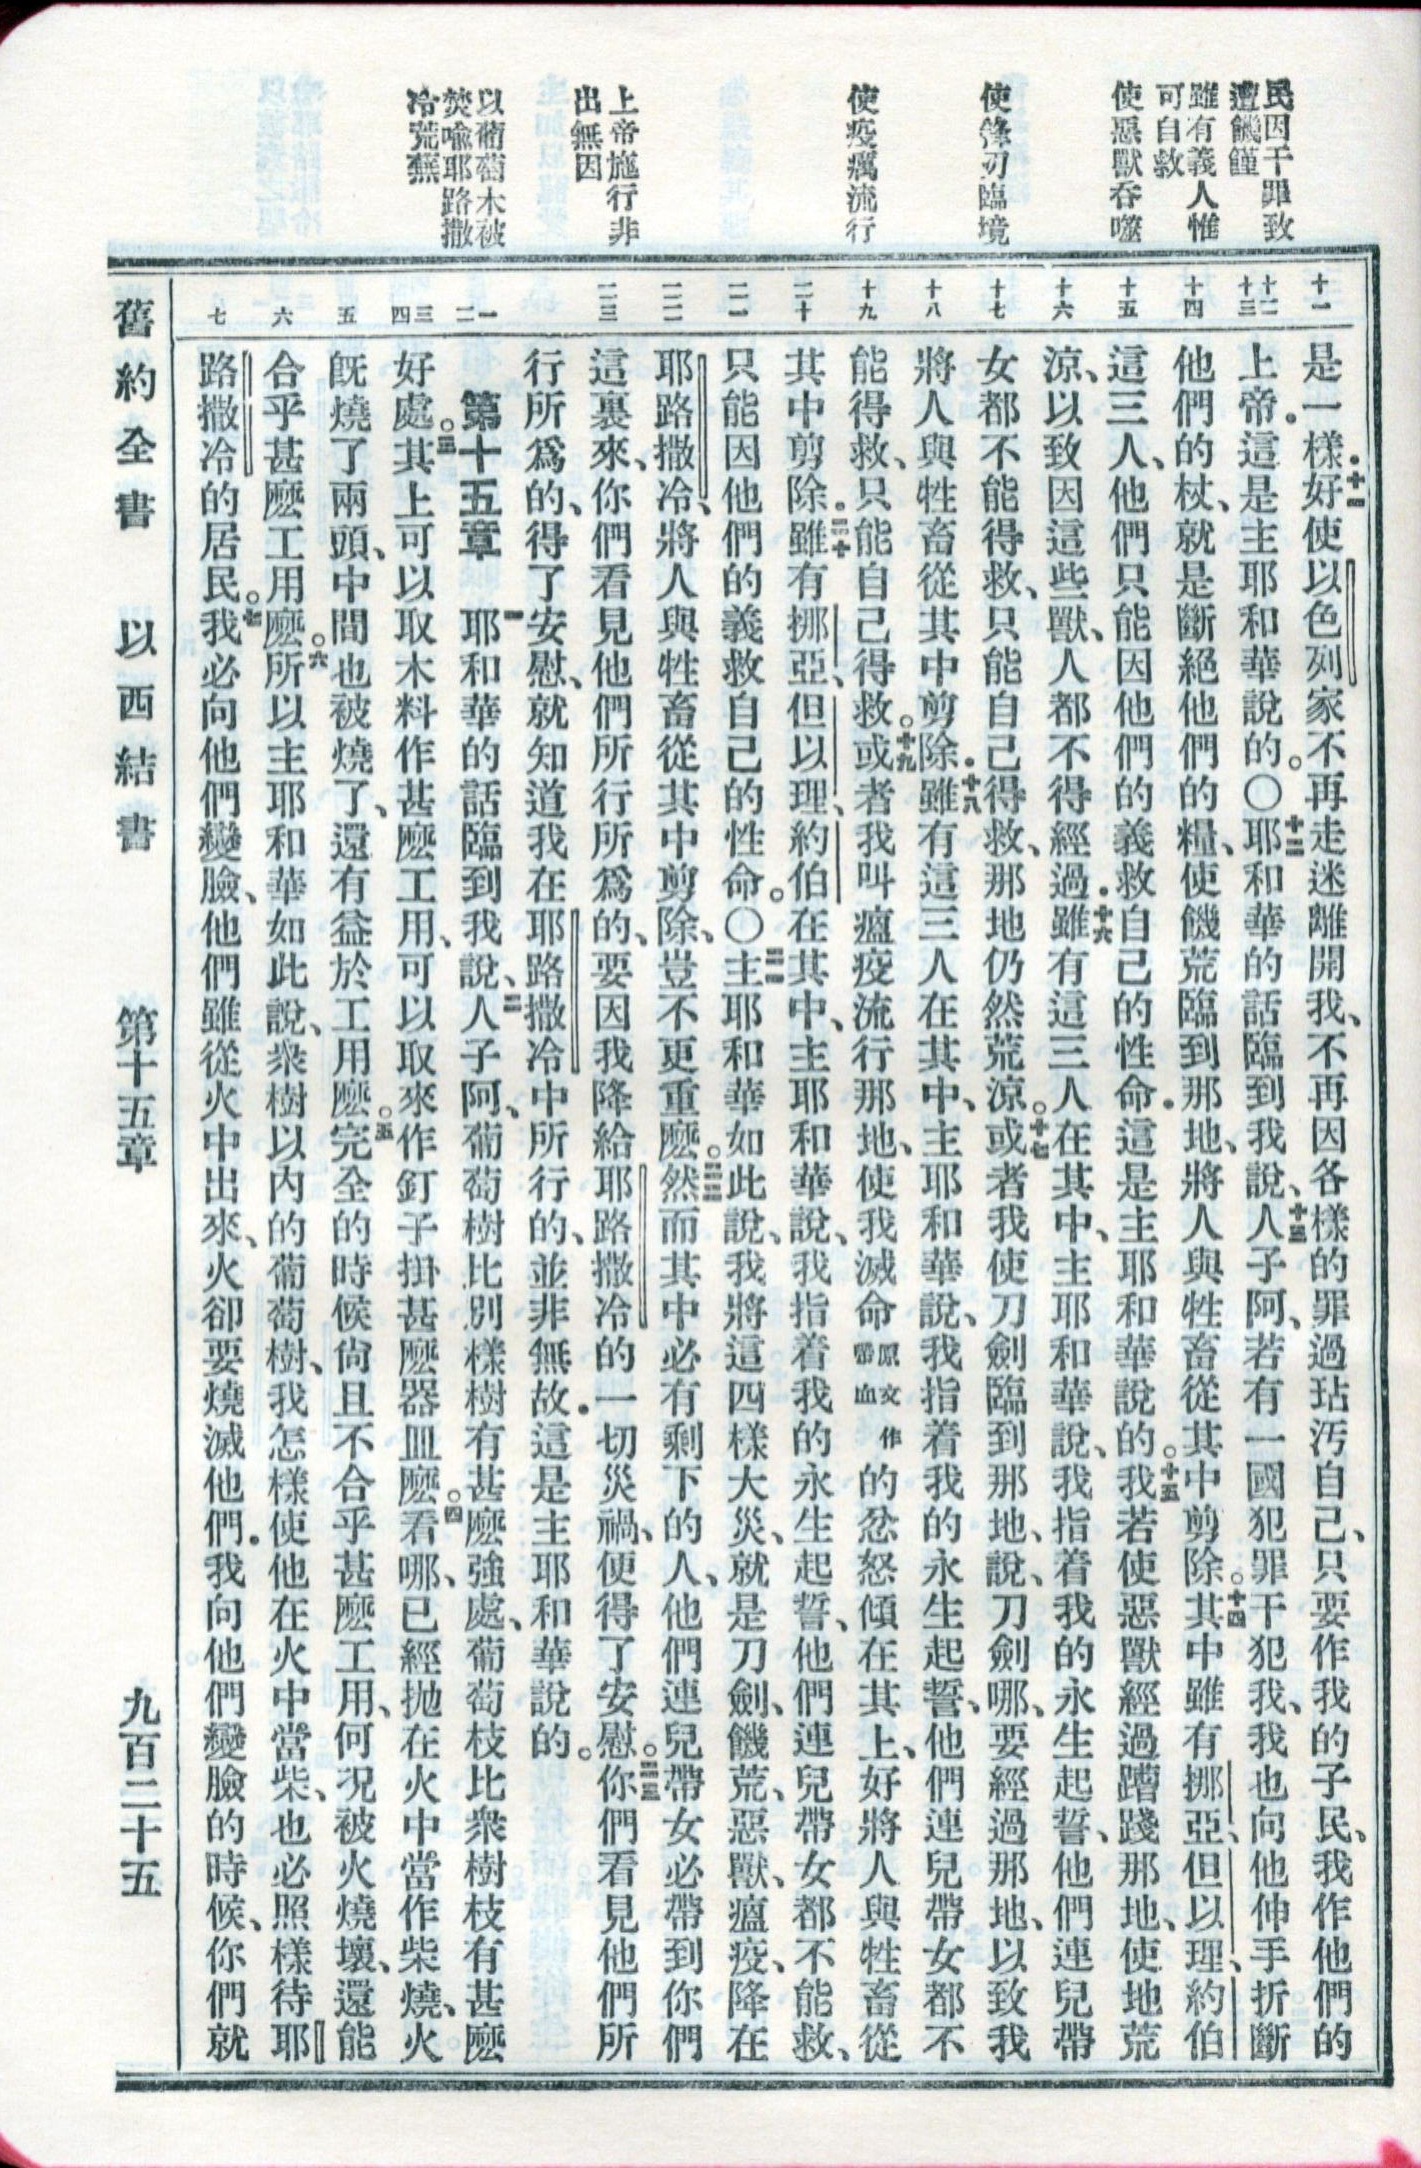 民因干罪致
遭饑饉
雖有義人惟
可自救
使惡獸吞噬
使鋒刃臨境
使疫癘流行
上帝施行非
出無因
以葡萄木被
焚喻耶路撒
冷荒蕪
十一
十二
十三
十四
十五
十六
十七
十八
十九
二十
二一
二二
二三
一
二
三
四
五
六
七
是一樣好．十一使以色列家不再走迷離開我、不再因各樣的罪過玷污自己、只要作我的子民、我作他們的
上帝．這是主耶和華說的。○十二耶和華的話臨到我說、十三人子阿、若有一國犯罪干犯我、我也向他伸手折斷
他們的杖、就是斷絕他們的糧、使饑荒臨到那地、將人與牲畜從其中剪除。十四其中雖有挪亞、但以理、約伯
這三人、他們只能因他們的義救自己的性命．這是主耶和華說的。十五我若使惡獸經過蹧踐那地、使地荒
涼、以致因這些獸、人都不得經過．十六雖有這三人在其中、主耶和華說、我指着我的永生起誓、他們連兒帶
女都不能得救、只能自己得救、那地仍然荒涼。十七或者我使刀劍臨到那地、說、刀劍哪、要經過那地、以致我
將人與牲畜從其中剪除．十八雖有這三人在其中、主耶和華說、我指着我的永生起誓、他們連兒帶女都不
能得救、只能自己得救。十九或者我叫瘟疫流行那地、使我滅命原文作帶血的忿怒傾在其上、好將人與牲畜從
其中剪除．二十雖有挪亞、但以理、約伯在其中、主耶和華說、我指着我的永生起誓、他們連兒帶女都不能救、
只能因他們的義救自己的性命。○二一主耶和華如此說、我將這四樣大災、就是刀劍、饑荒、惡獸、瘟疫、降在
耶路撒冷、將人與牲畜從其中剪除、豈不更重麽。二二然而其中必有剩下的人、他們連兒帶女必帶到你們
這裏來、你們看見他們所行所爲的、要因我降給耶路撒冷的一切災禍、便得了安慰。二三你們看見他們所
行所爲的、得了安慰、就知道我在耶路撒冷中所行的、並非無故．這是主耶和華說的。
第十五章　一耶和華的話臨到我說、二人子阿、葡萄樹比別樣樹有甚麽強處、葡萄枝比衆樹枝有甚麽
好處。三其上可以取木料作甚麽工用、可以取來作釘子掛甚麽器皿麽。四看哪、已經抛在火中當作柴燒、火
旣燒了兩頭、中間也被燒了、還有益於工用麽。五完全的時候尙且不合乎甚麽工用、何况被火燒壞、還能
合乎甚麽工用麽。六所以主耶和華如此說、衆樹以內的葡萄樹、我怎樣使他在火中當柴、也必照樣待耶
路撒冷的居民。七我必向他們變臉、他們雖從火中出來、火卻要燒滅他們．我向他們變臉的時候、你們就
舊約全書　以西結書　第十五章　九百二十五